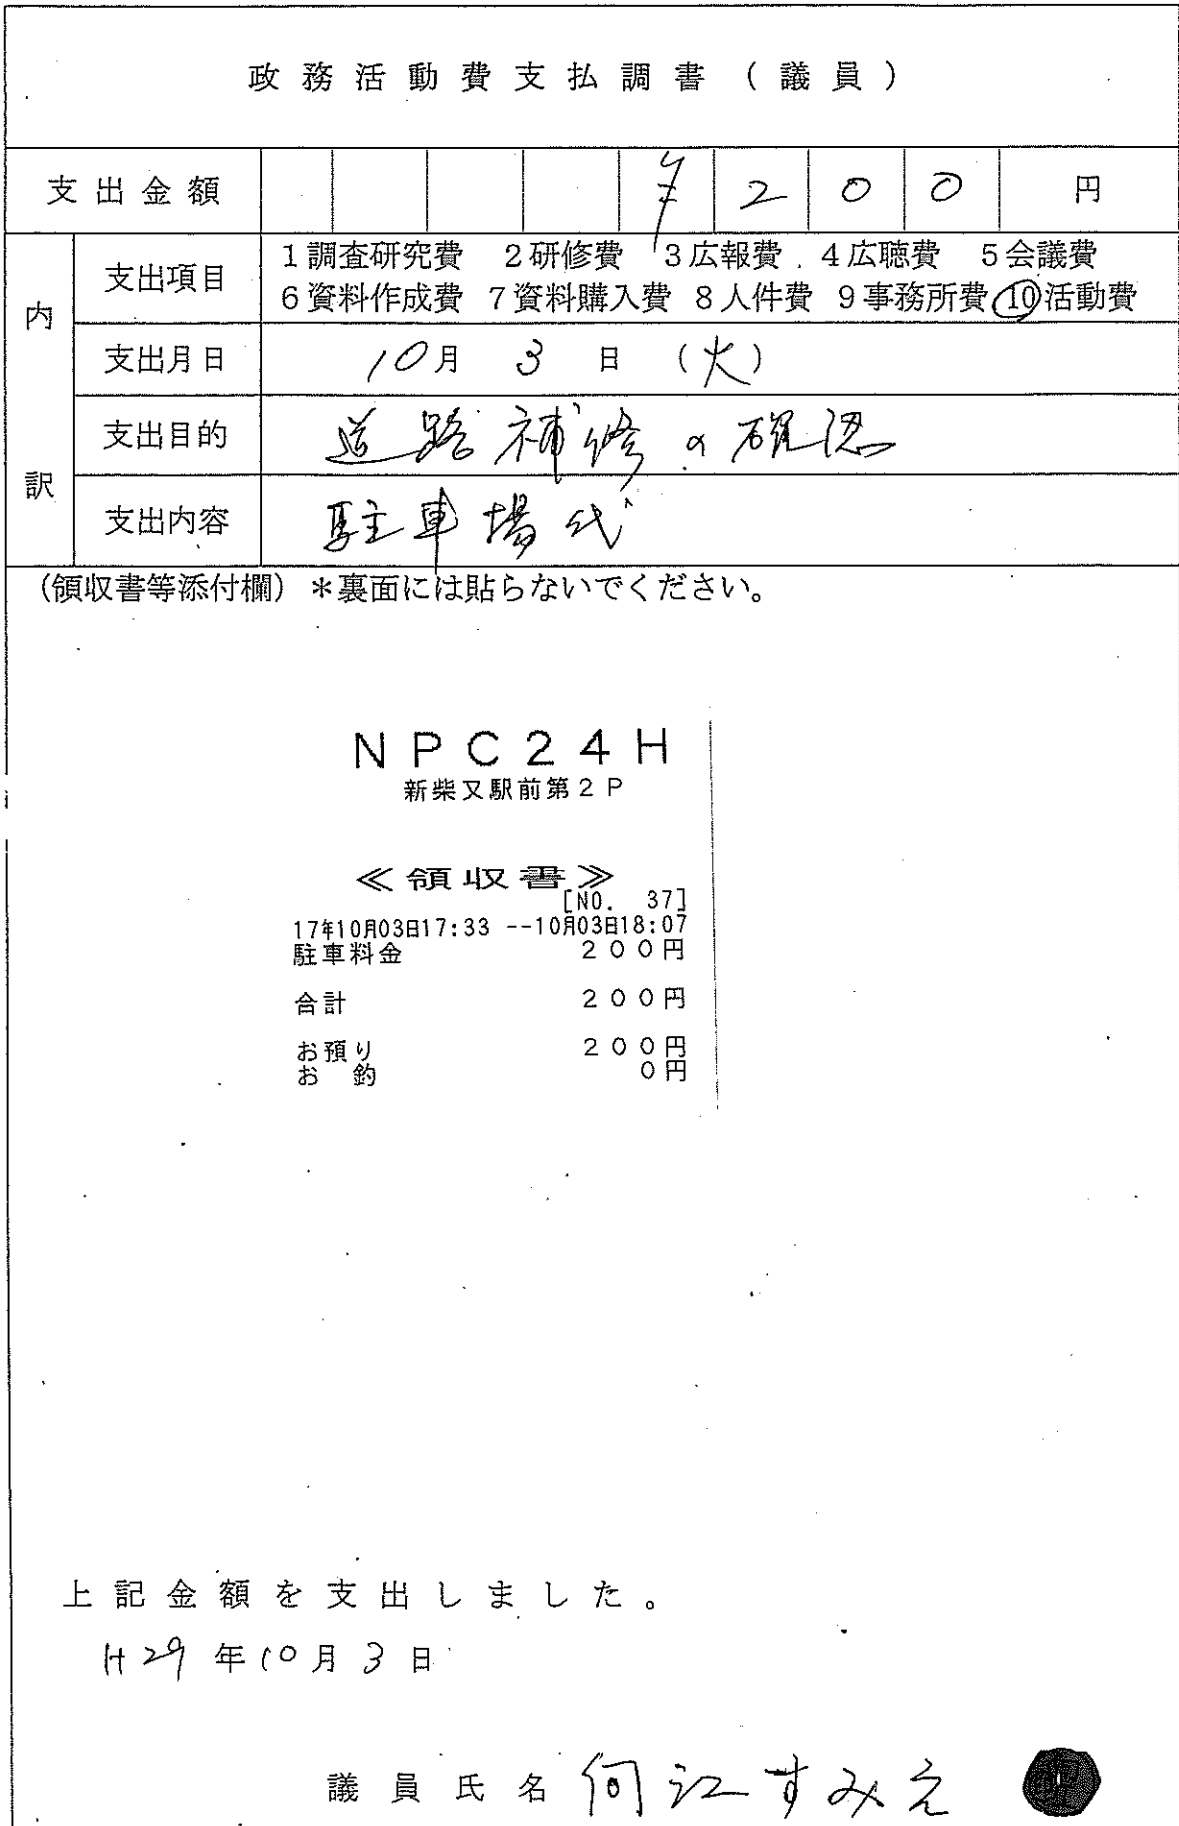 政務活動費支払調書（議員）
支出金額 ¥200円
内訳
支出項目 1調査研究費 2研修費 3広報費 4広聴費 5会議費
6資料作成費 7資料購入費 8人件費 9事務所費 ⑩活動費
支出月日 10月3日（火）
支出目的 道路補修の確認
支出内容 駐車場代
（領収書等添付欄）＊裏面には貼らないでください。
NPC24H
新柴又駅前第2P
≪領収書≫
[NO. 37]
17年10月03日17:33 --10月03日18:07
駐車料金 200円
合計 200円
お預り 200円
お釣 0円
上記金額を支出しました。
H29年10月3日
議員氏名 江すみえ